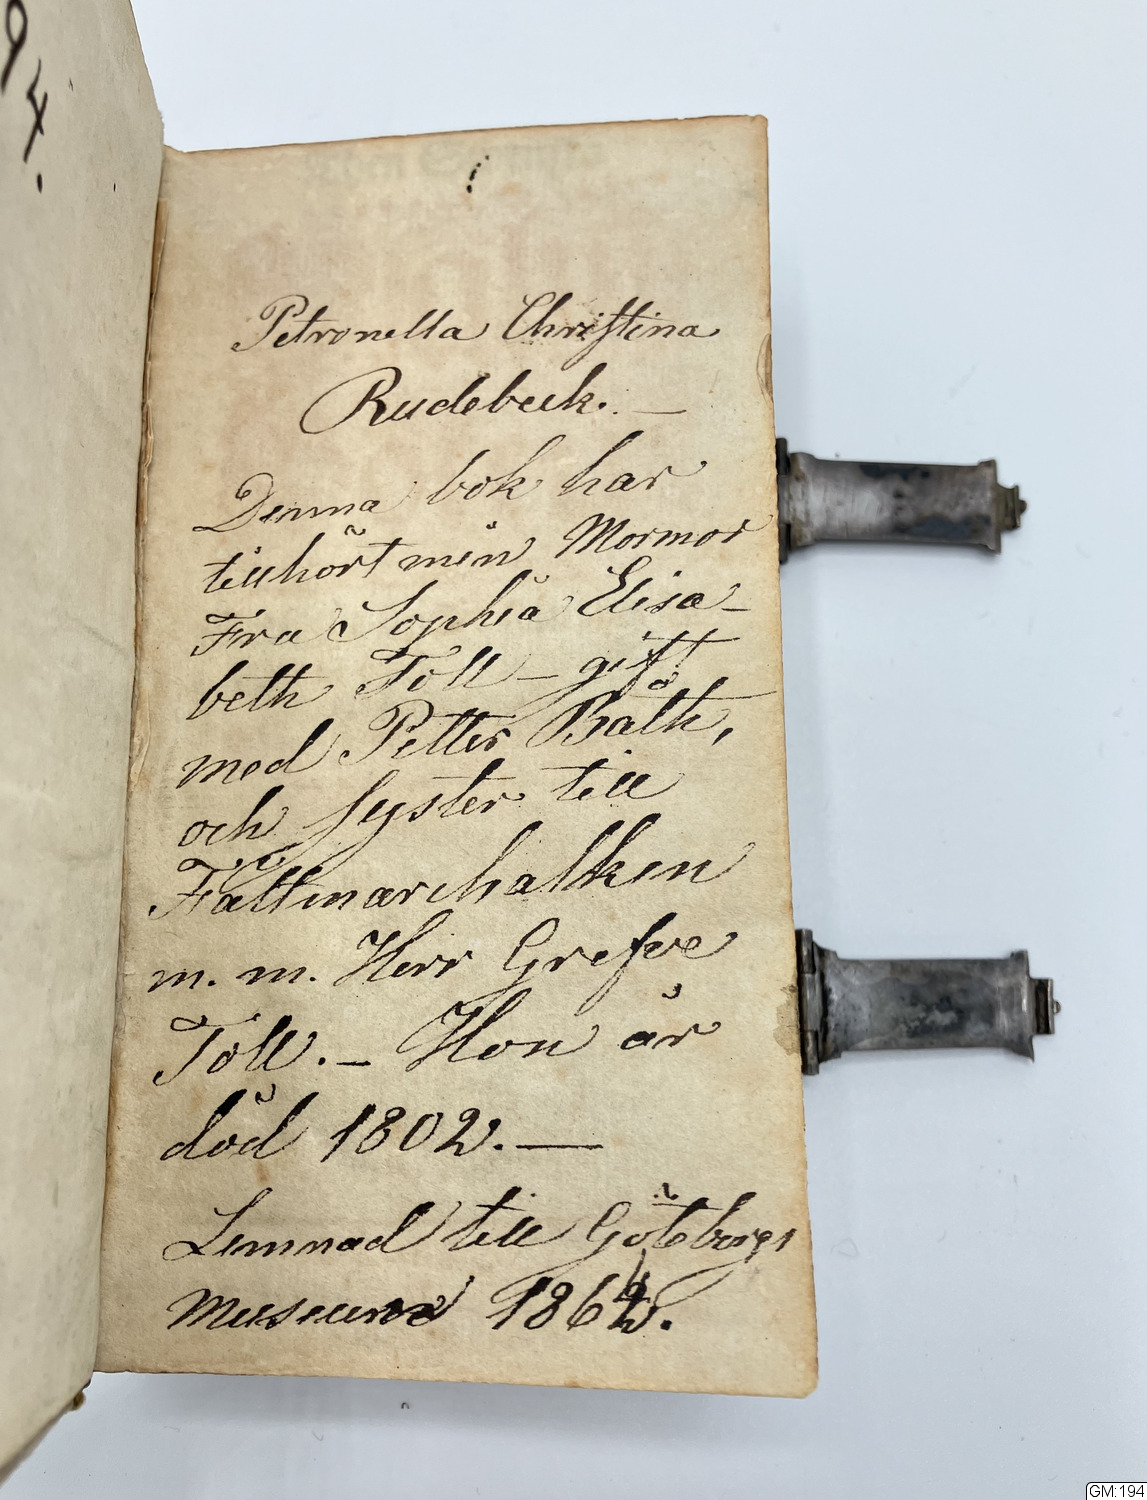 94.
Petronella Christina
Rudebeck. —
Denna bok har
tillhört min Mormor
Fru Sophia Elisa-
beth Toll – gift
med Petter Bååth,
och syster till
Fältmarchalken
m. m. Herr Grefve
Toll. – Hon är
död 1802. —
Lemnad till Göteborgs
Museum
GM:194